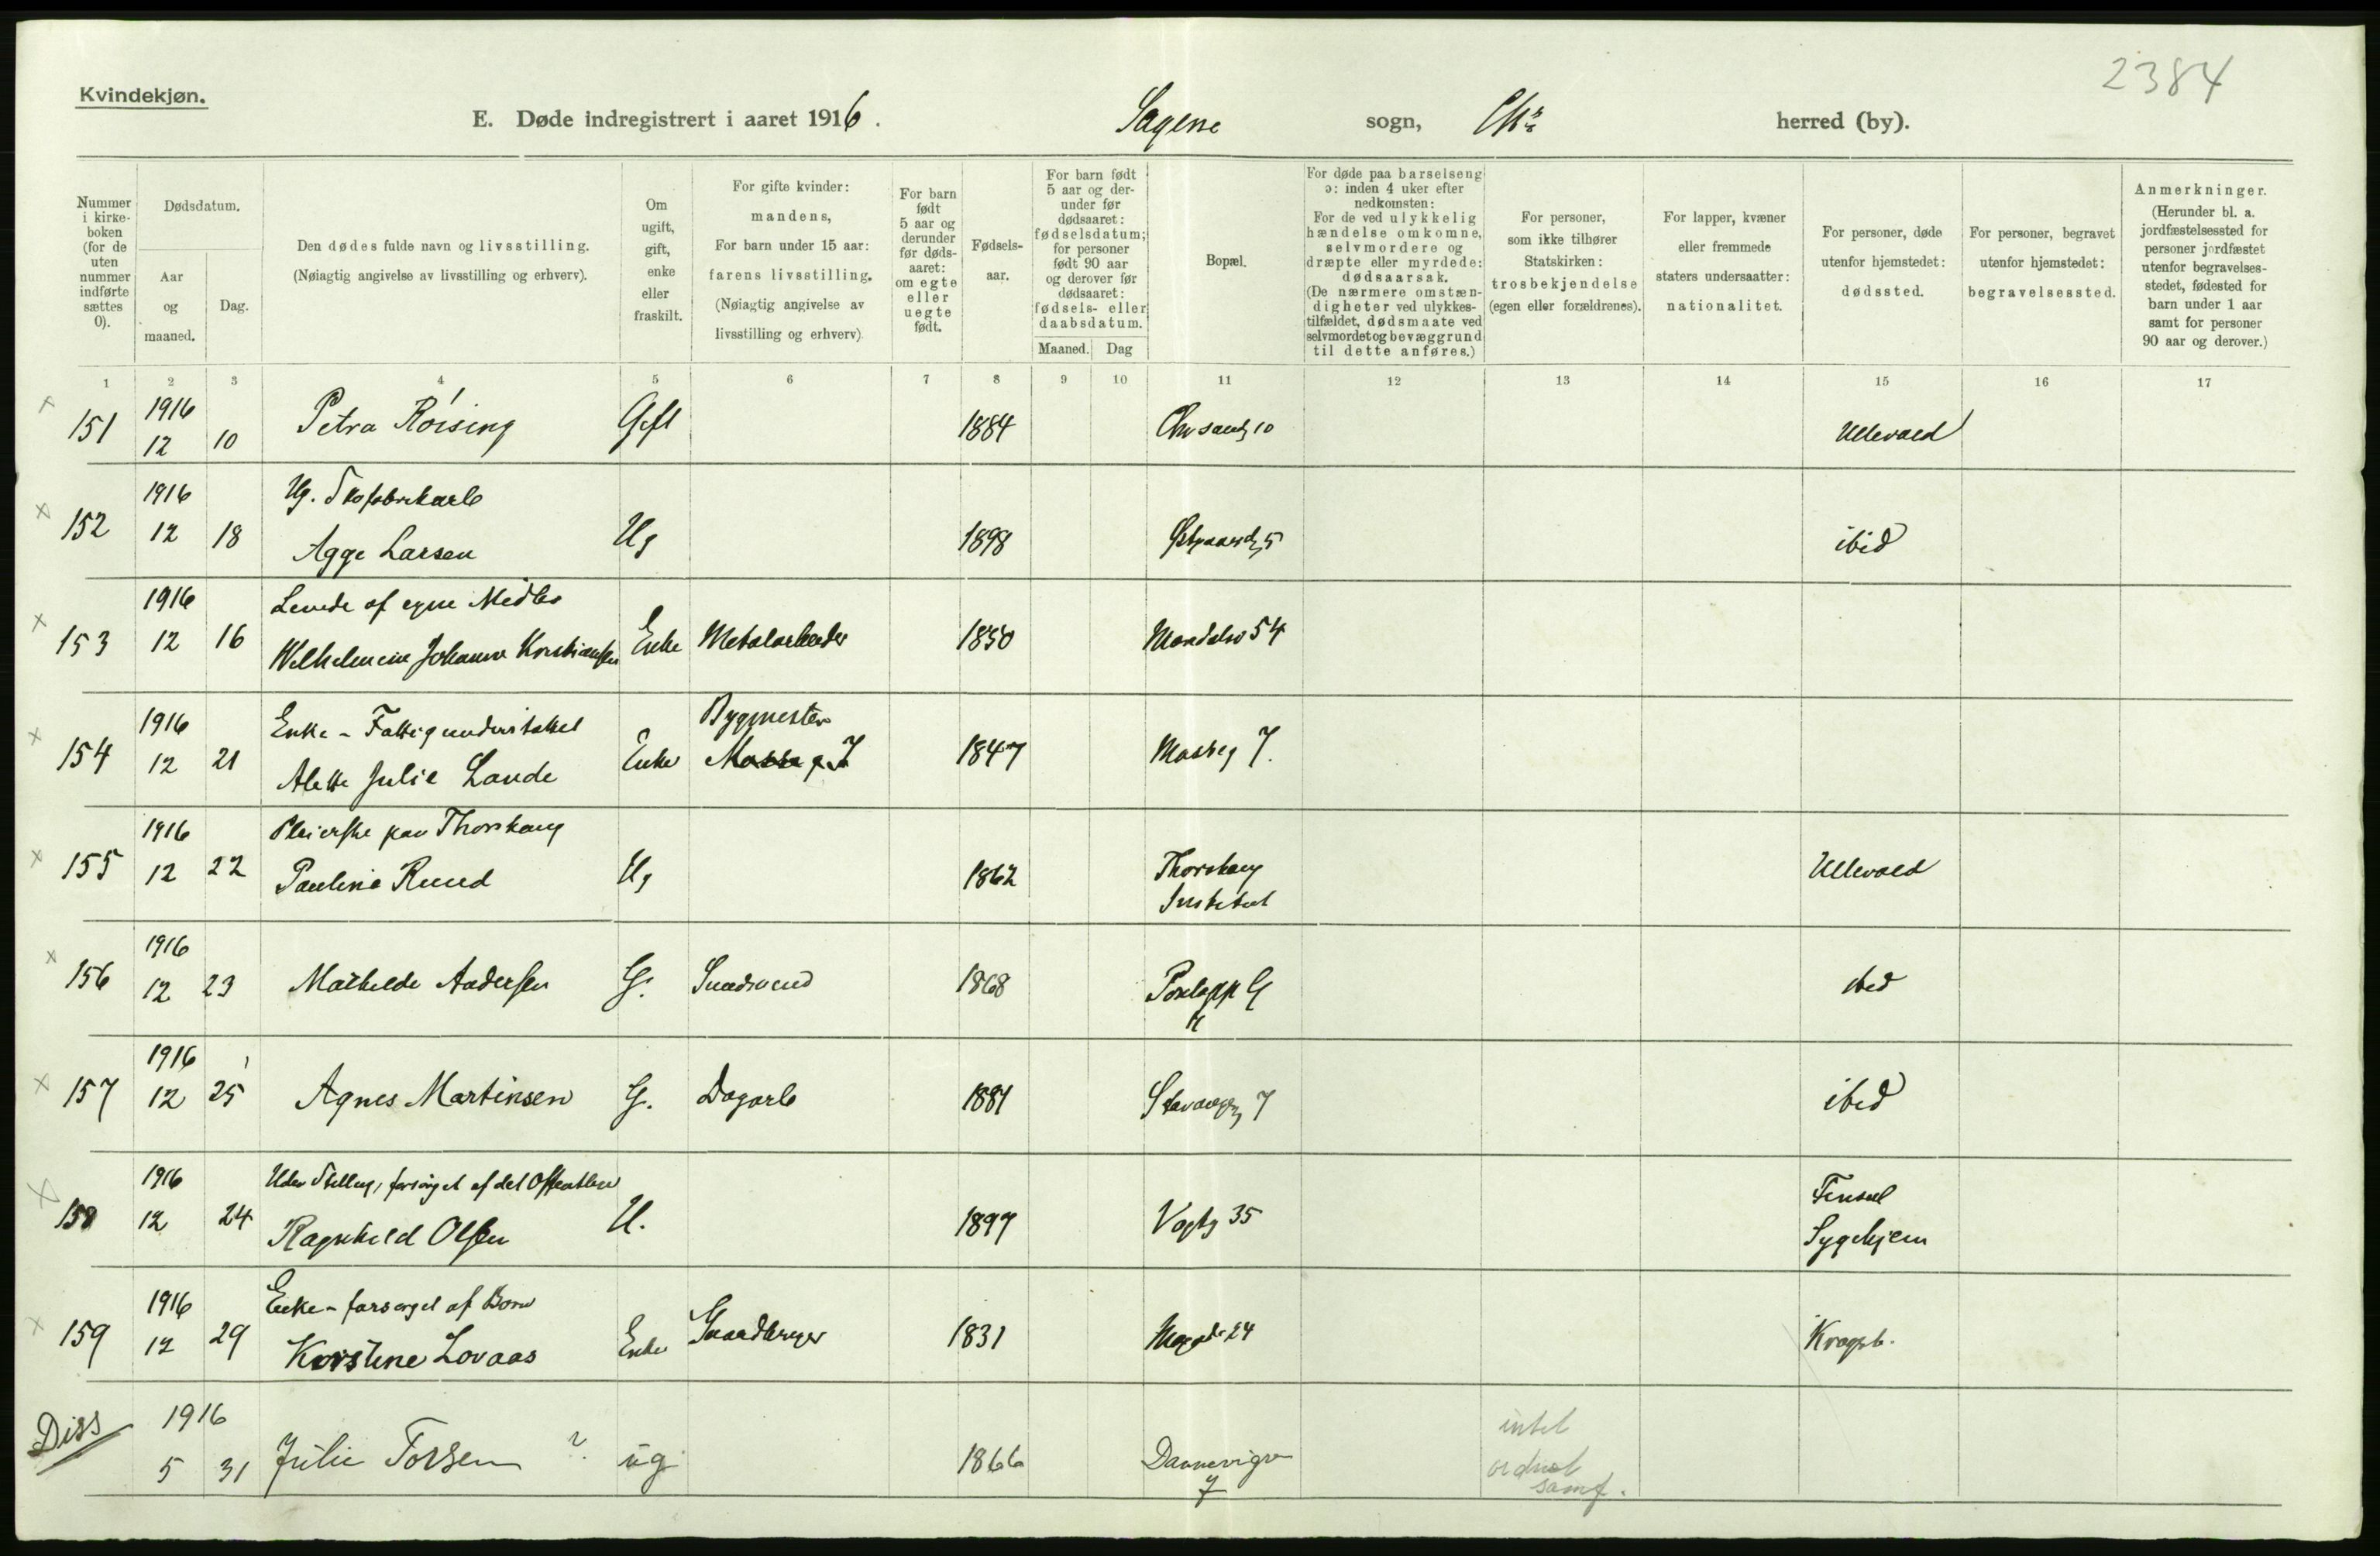 2384
Kvindekjøn.
E. Døde indregistrert i aaret 1916. Sagene sogn, Chra herred (by).
Nummer i kirke-boken (for de uten nummer indførte sættes 0).
Dødsdatum.
Aar og maaned.
Dag.
Den dødes fulde navn og livsstilling.
(Nøiagtig angivelse av livsstilling og erhverv).
Om ugift, gift, enke eller fraskilt.
For gifte kvinder: mandens,
For barn under 15 aar: farens livsstilling.
(Nøiagtig angivelse av livsstilling og erhverv)
For barn født 5 aar og derunder før døds-aaret: om egte eller uegte født.
Fødsels-aar.
For barn født 5 aar og der-under før dødsaaret: fødselsdatum; for personer født 90 aar og derover før dødsaaret: fødsels- eller daabsdatum.
Maaned. Dag
Bopæl.
For døde paa barselseng ɔ: inden 4 uker efter nedkomsten:
For de ved ulykkelig hændelse omkomne, selvmordere og dræpte eller myrdede: dødsaarsak.
(De nærmere omstæn-digheter ved ulykkes-tilfældet, dødsmaate ved selvmordet og bevæggrund til dette anføres.)
For personer, som ikke tilhører Statskirken: trosbekjendelse (egen eller forældrenes).
For lapper, kvæner eller fremmede staters undersaatter: nationalitet.
For personer, døde utenfor hjemstedet: dødssted.
For personer, begravet utenfor hjemstedet: begravelsessted.
Anmerkninger.
(Herunder bl. a. jordfæstelsessted for personer jordfæstet utenfor begravelses-stedet, fødested for barn under 1 aar samt for personer 90 aar og derover.)
1 2 3 4 5 6 7 8 9 10 11 12 13 14 15 16 17
151 1916 12 10 Petra Röising Gift 1884 10 Ullevaal
1916 Ug. Skofabrikarb
152 12 18 Agge Larsen Ug 1898 5 ibid
1916 Levede af egne Midler
153 12 16 Wilhelmine Johanne Kristiansen Enke Metalarbeider 1850 Mandalsv 54
1916 Enke - Fattigunderstøttet Bygmester
154 12 21 Alette Julie Lande Enke 1847 Mosseg 7.
1916 Pleierske paa Thorshaug
155 12 22 Pauline Ruud Ug 1862 Thorshaug Institut Ullevaal
156 1916 12 23 Mathilde Andersen G. 1868 ibid
157 1916 12 25 Agnes Martinsen G. Dagarb 1881 Stavangg 7 ibid
1916 Uden Stilling, forsørget af det Offentlige
158 12 24 Ragnhild Olsen U. 1897 Vogtg 35 Sygehjem
1916 Enke - forsørget af Børn
159 12 29 Kirstine Lovaas Enke Gaardbruger 1831 24 Kragst.
Diss 1916
5 31 Julie Torsen ? ug 1866 Dannevigsv 7 intet ordnet samf.